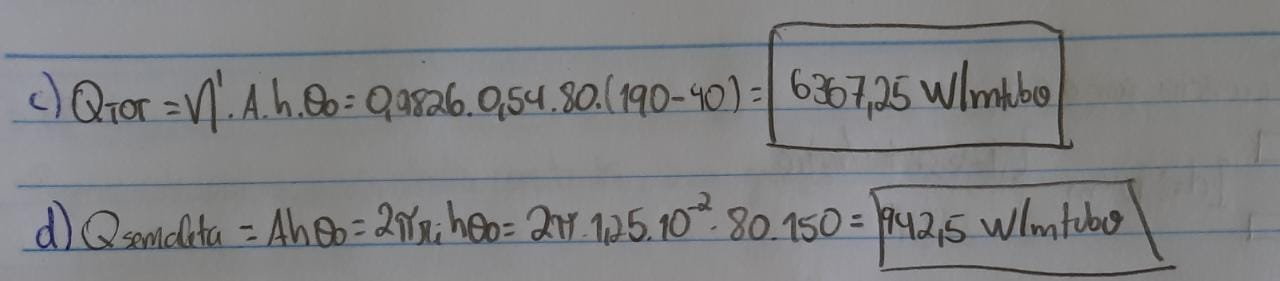 c) QTOT = η'.A.h.θo = 0,9826.0,54.80.(190-40) = 6367,25 W/mtubo
d) Qsemaleta = Ahθo = 2πrihθo = 2π.1,25.10⁻².80.150 = 942,5 W/mtubo